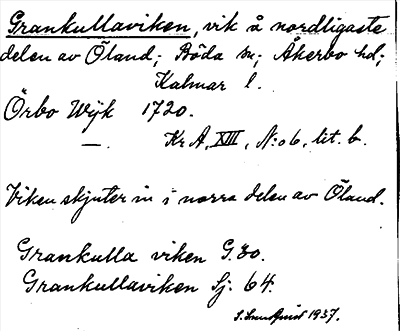 Grankullaviken, vik å nordligaste
delen av Öland; Böda sn; Åkerbo hd;
Kalmar l.
Örbo Wijk 1720.
— Kr A, XIII, N:o 6, lit. b.
Viken skjuter in i norra delen av Öland.
Grankulla viken G. 30.
Grankullaviken Sj: 64.
1937.